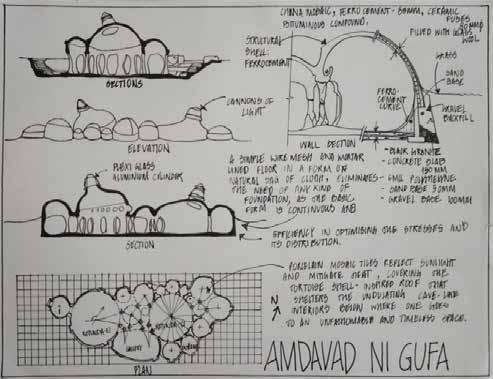 CHINA MOSAIC, FERRO CEMENT - 30MM, CERAMIC
FUSES
BITUMINOUS COMPOUND.
80MM Ø
FILLED WITH GLASS
WOOL
STRUCTURAL
SHELL:
FERROCEMENT
GRASS
SAND
BASE
FERRO-
CEMENT
CURVE
GRAVEL
BACKFILL
SECTIONS
CANNONS OF
LIGHT
ELEVATION
WALL SECTION
BLACK GRANITE
CONCRETE SLAB
150MM
6MIL POLYETHYLENE
SAND BASE 50MM
GRAVEL BASE 100MM
PLEXI GLASS
ALUMINIUM CYLINDER
A SIMPLE WIRE MESH AND MORTAR
LINED FLOOR IN A FORM OR
NATURAL SAG OF CLOTH, ELIMINATES
THE NEED OF ANY KIND OF
FOUNDATION, AS THE BASIC
FORM IS CONTINUOUS AND
SECTION
EFFICIENCY IN OPTIMISING THE STRESSES AND
ITS DISTRIBUTION.
PORCELAIN MOSAIC TILES REFLECT SUNLIGHT
AND MITIGATE HEAT, COVERING THE
TORTOISE SHELL-INSPIRED ROOF THAT
N
SHELTERS THE UNDULATING CAVE-LIKE
INTERIORS BELOW WHERE ONE GOES
TO AN UNFASHIONABLE AND TIMELESS SPACE.
GALLERY
PLAN
AMDAVAD NI GUFA